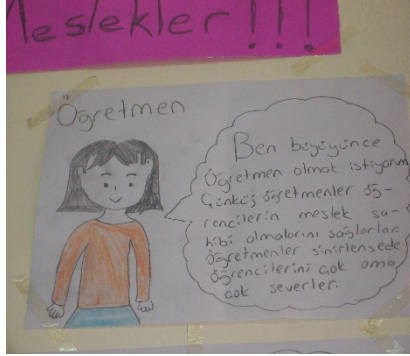 Meslekler!!!
Öğretmen
Ben büyüyünce
Öğretmen olmak istiyorum
Çünkü öğretmenler öğ-
rencilerin meslek sa-
hibi olmalarını sağlarlar.
Öğretmenler sinirlensede
öğrencilerini çok ama
çok severler.